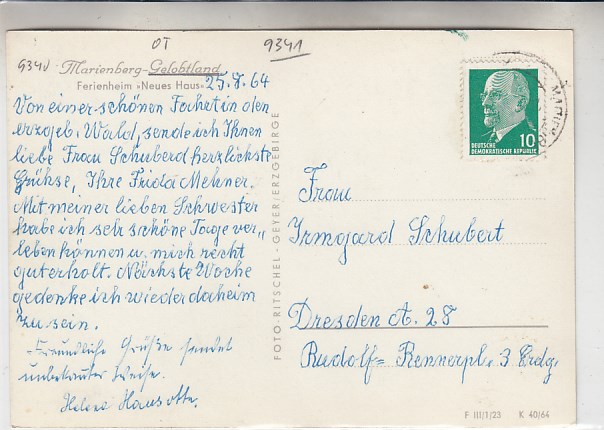 OT
9341
9341
Marienberg-Gelobtland
Ferienheim »Neues Haus«
25.7.64
Von einer schönen Fahrt in den
erzgeb. Wald, sende ich Ihnen
liebe Frau Schuberd herzlichste
Grühse, Ihre Frida Mehner.
Mit meiner lieben Schwester
habe ich sehr schöne Tage ver„
leben können u. mich recht
gut erholt. Nächste Woche
gedenke ich wieder daheim
zu sein.
Freundliche Grüße sendet
unbekannter Weise.
Helene
FOTO-RITSCHEL - GEYER/ERZGEBIRGE
10
DEUTSCHE
DEMOKRATISCHE REPUBLIK
Frau
Irmgard Schubert
Dresden A. 28
Rudolf= Rennerpl. 3 Erdg.
F III/1/23 K 40/64